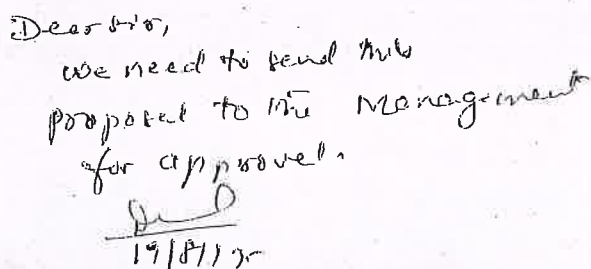 Dear Sir,
we need to send this
proposal to the Management
for approval.